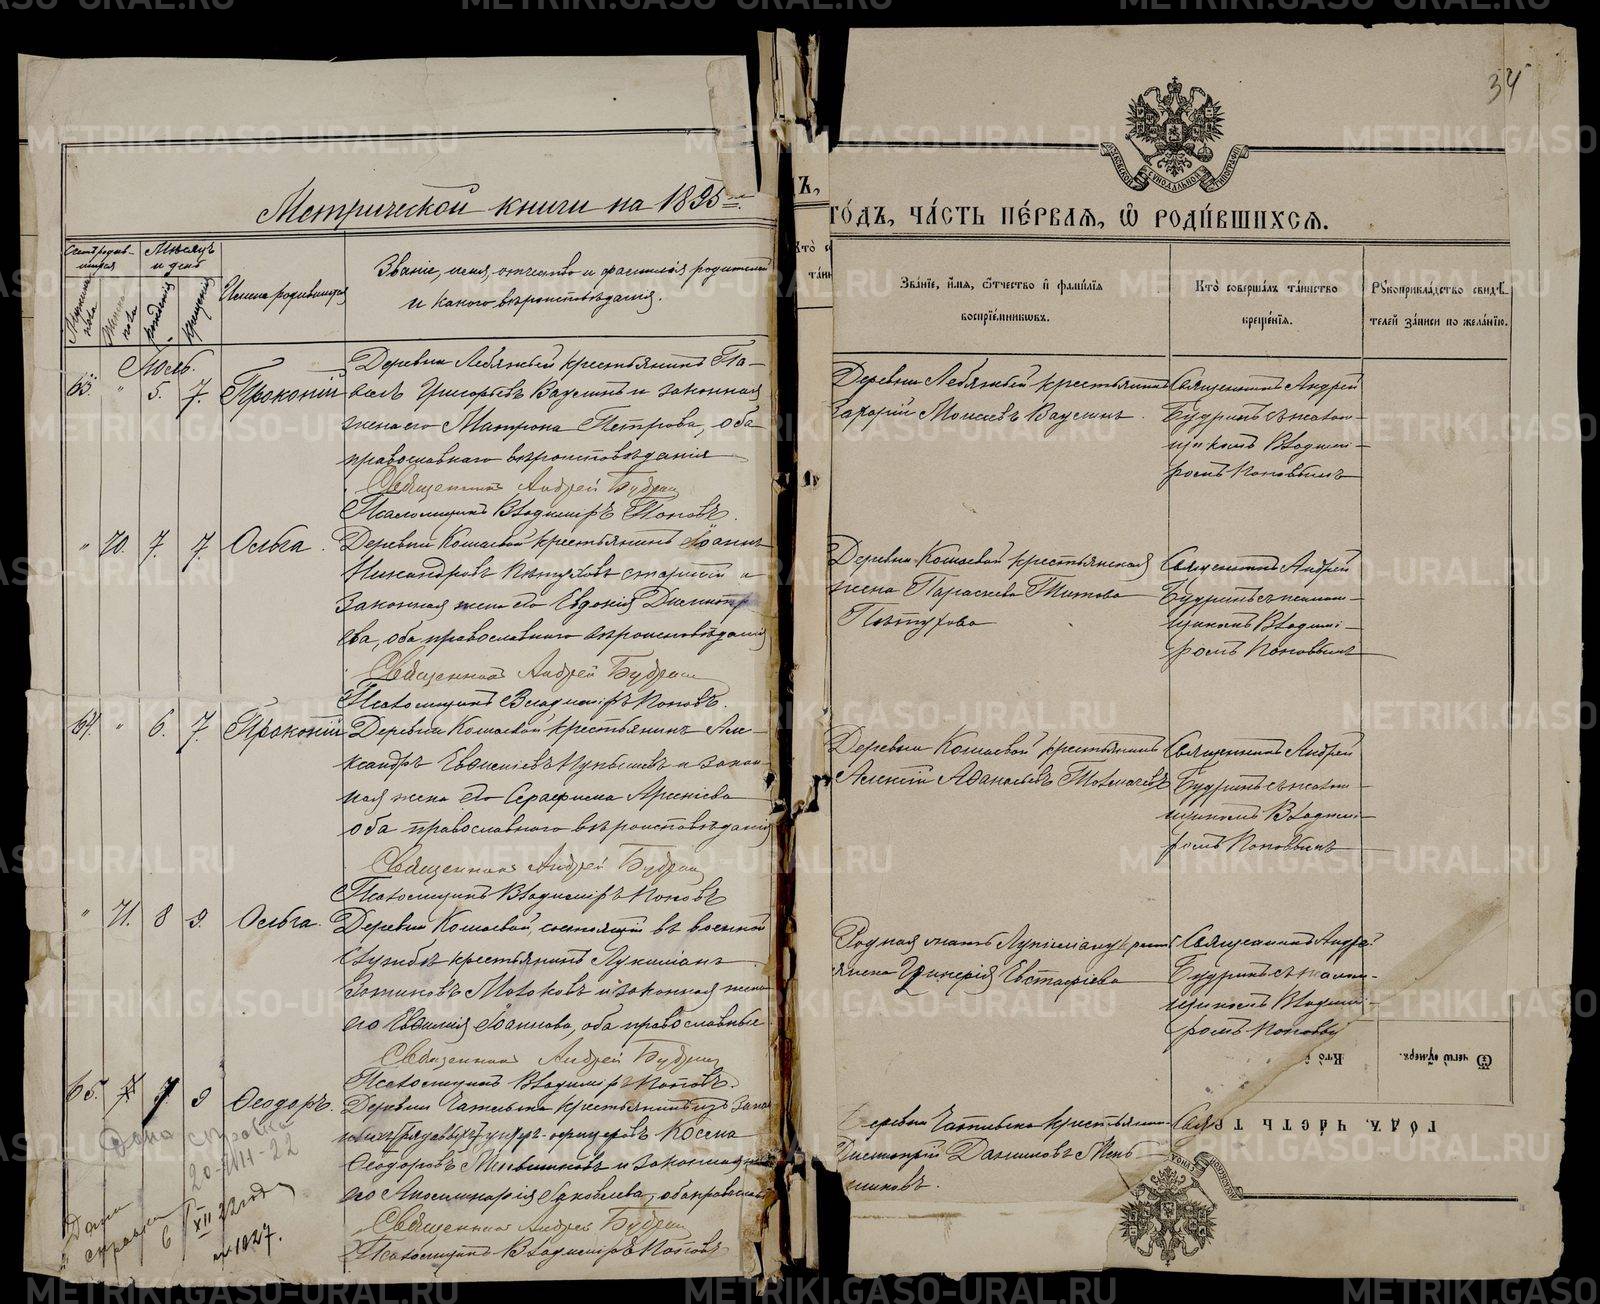 34
Метрической книги на 1895
го́дъ, ча́сть пе́рваѧ, ѡ҆ роди́вшихсѧ.
Мѣсяцъ и день
рожденія
крещенія
Имена родившихся
Званіе, имя, отчество и фамилія родителей
и какого вѣроисповѣданія.
Зва́нїе, и҆́мѧ, ѻ҆́тчество и҆ фами́лїѧ
воспрїе́мникѡвъ.
Кто̀ соверша́лъ та́инство
креще́нїѧ.
Рꙋкоприкла́дство свидѣ́-
телей за́писи по жела́нїю.
Іюль.
63. " 5. 7. Прокопій
Деревни Лебяжьей крестьянинъ Па-
велъ Григорьевъ Ваулинъ и законная
жена его Матрона Петрова, оба
православнаго вѣроисповѣданія
Священникъ Андрей Будринъ
Псаломщикъ Владиміръ Поповъ.
Деревни Лебяжьей крестьянинъ
Захарій Моисеевъ Ваулинъ.
Священникъ Андрей
Будринъ съ псалом-
щикомъ Владимі-
ромъ Поповымъ
" 70. 7. 7. Ольга.
Деревни Кошаевой крестьянинъ Іоаннъ
Никандровъ Пѣтуховъ старшій и
законная жена его Евдокія Димитр
ева, оба православнаго вѣроисповѣданія
Священникъ Андрей Будринъ
Псаломщикъ Владиміръ Поповъ.
Деревни Кошаевой крестьянская
жена Параскева Титова
Пѣтухова
Священникъ Андрей
Будринъ съ псалом-
щикомъ Владимі-
ромъ Поповымъ
64. " 6. 7. Прокопій
Деревни Кошаевой крестьянинъ Але-
ксандръ
и закон-
ная жена его Серафима Арсеніева
оба православнаго вѣроисповѣданія
Священникъ Андрей Будринъ
Псаломщикъ Владиміръ Поповъ
Деревни Кошаевой крестьянинъ
Алексій Аѳанасьевъ Толмачевъ
Священникъ Андрей
Будринъ съ псалом-
щикомъ Владимі-
ромъ Поповымъ
" 71. 8 9. Ольга.
Деревни Кошаевой, состоящій въ военной
службѣ крестьянинъ Лукиліанъ
Молоковъ и законная жена
его Евѳимія Іоаннова, оба православные
Священникъ Андрей Будринъ
Псаломщикъ Владиміръ Поповъ.
Родная мать Лукиліану крест
жена Гликерія Евстафіева
Священникъ Андрей
Будринъ съ псалом-
щикомъ Владимі-
ромъ Поповы
Кто̀
Ѿ чегѡ̀ ᲂу҆́меръ.
65. 7 9 Ѳеодоръ.
Деревни крестьянинъ изъ запас
ныхъ (рядовыхъ) унтеръ-офицеровъ Косма
Ѳеодоровъ Мельниковъ и законная жена
его Яковлева, оба православ
Священникъ Андрей Будринъ
Псаломщикъ Владиміръ Поповъ
Деревни крестьянинъ
Димитрій Даниловъ Мель-
никовъ.
Свя
го́дъ, ча́сть тре
Дана справка
20-VIII-22
Дана
справка 6 XII 22 года
№ 1027.
METRIKI.GASO-URAL.RU